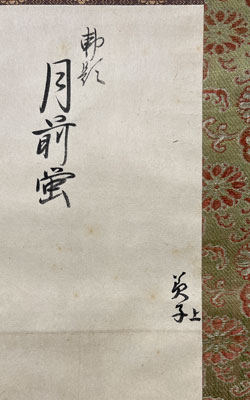 勅題
月前蛍
英子上